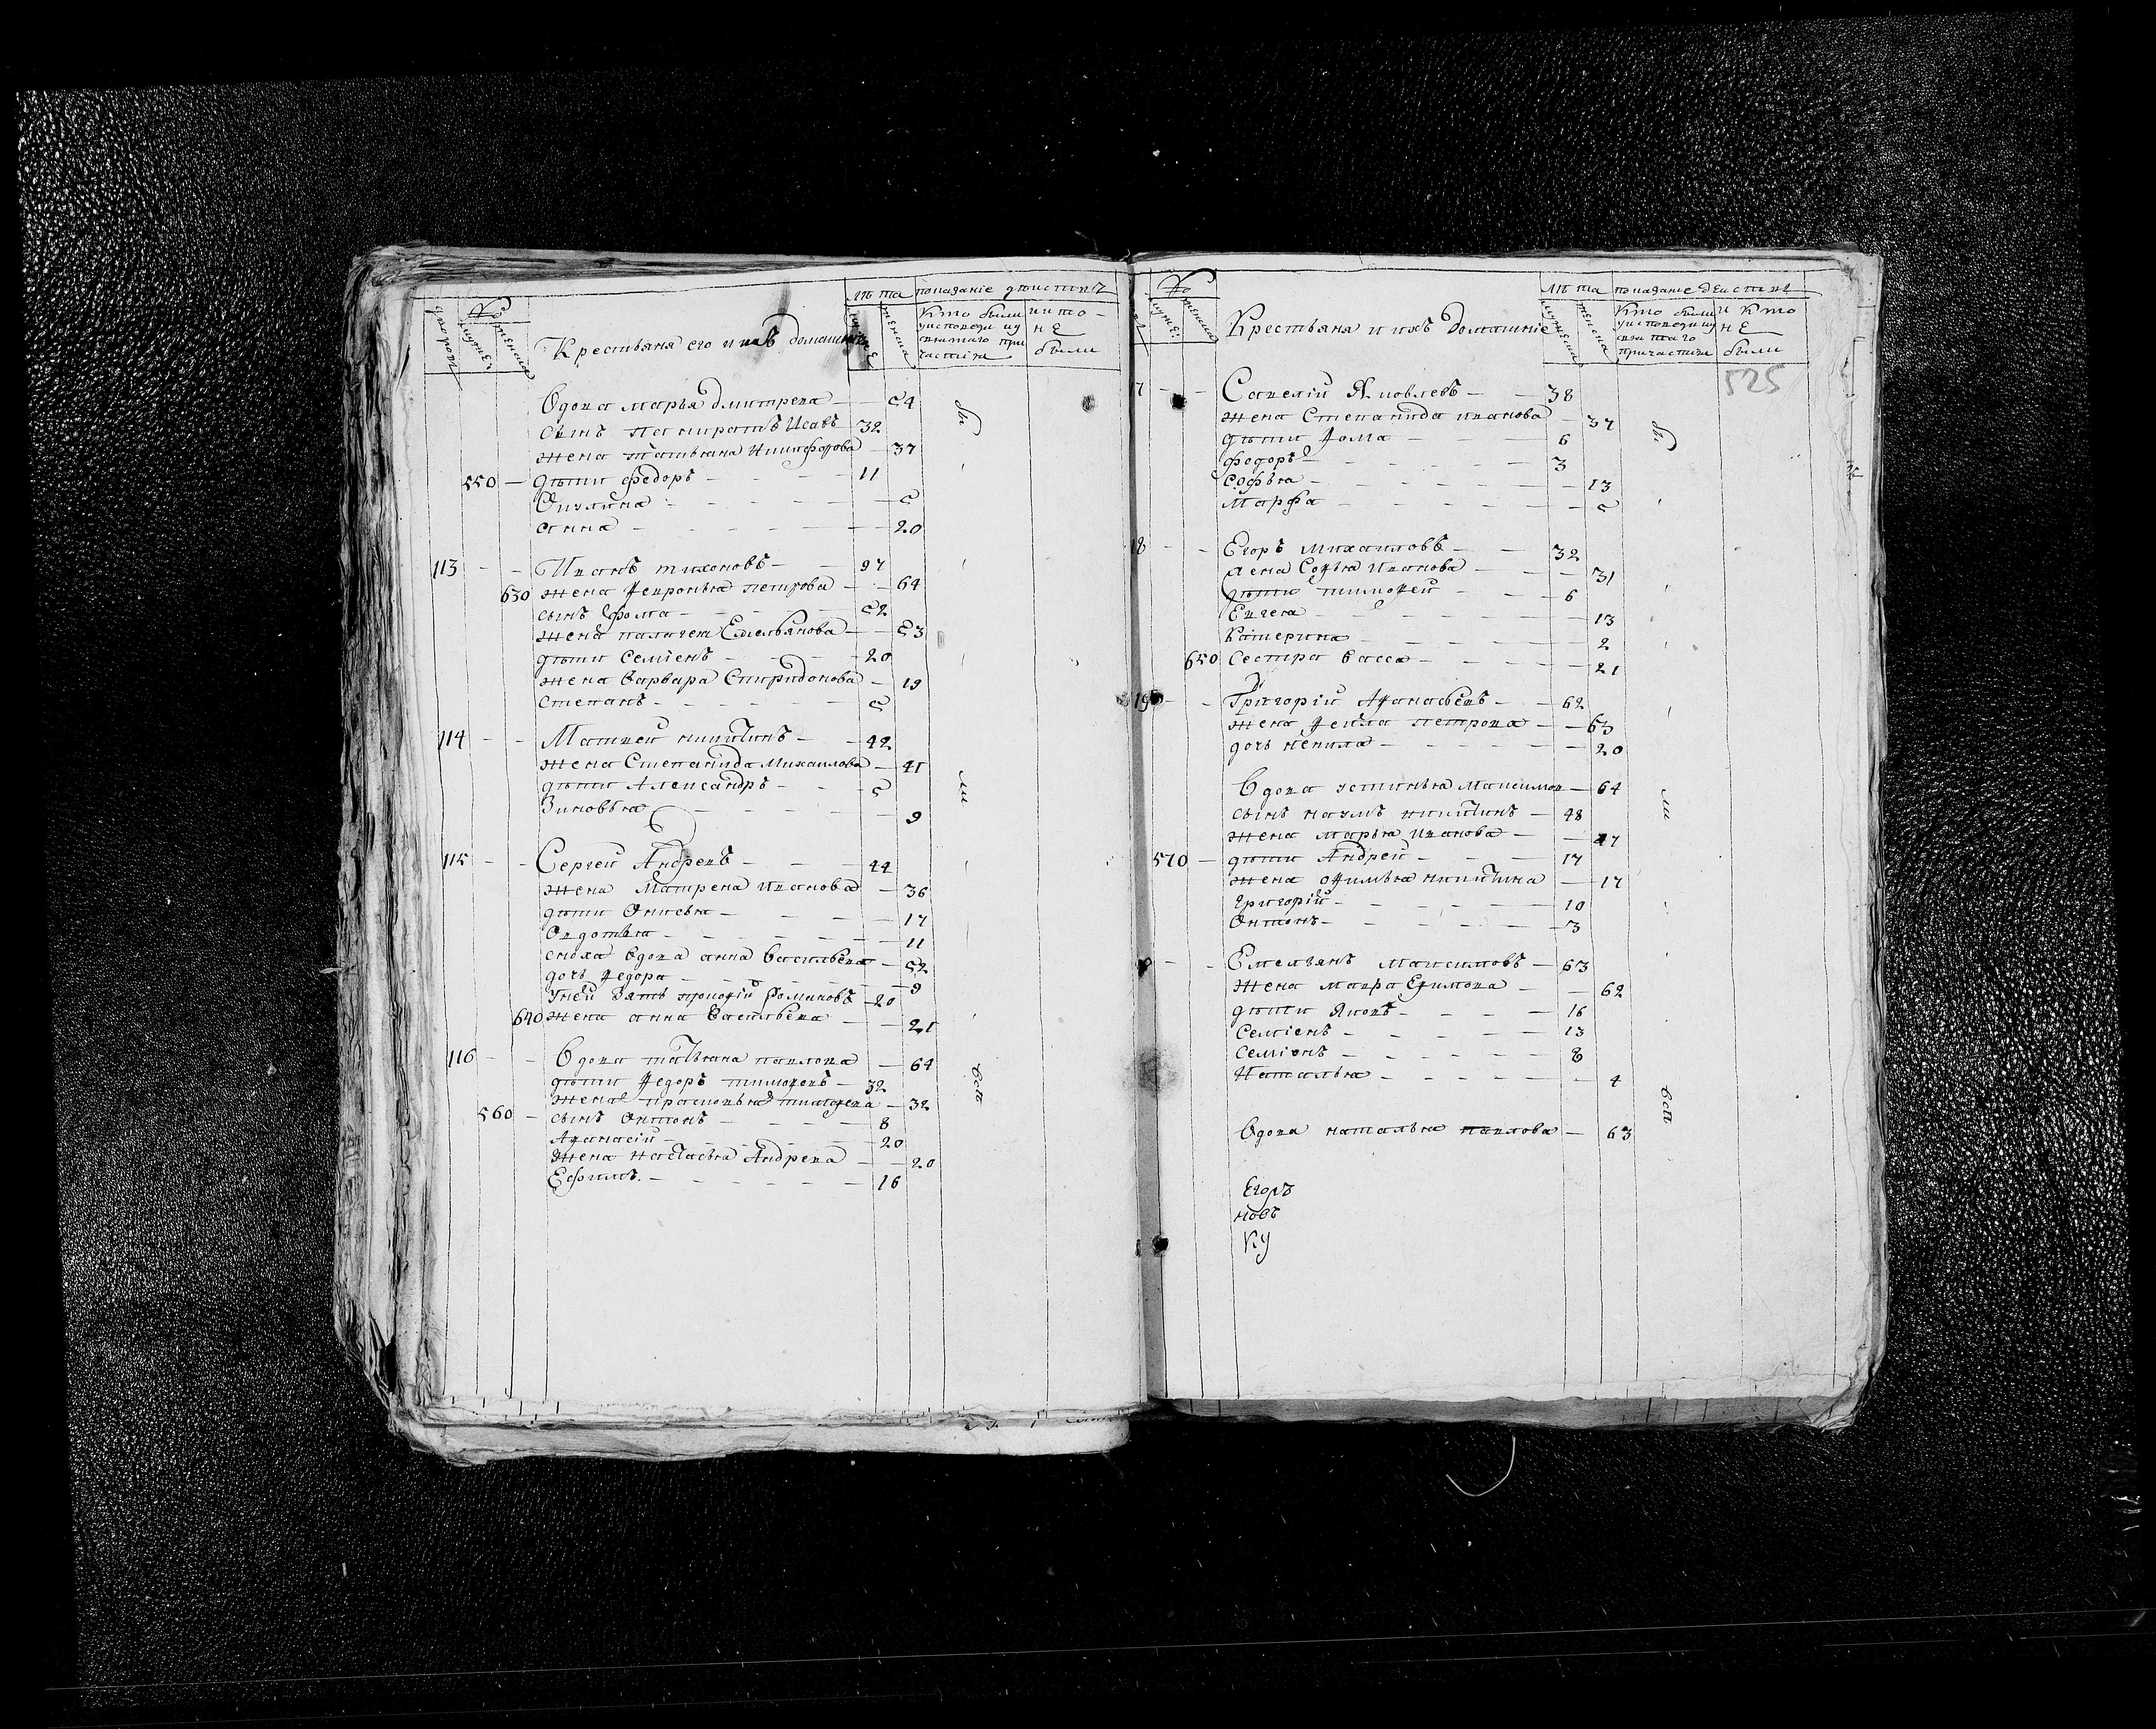 №
лѣта показанiе дѣиствъ
дворовъ
мужеск
женска
Крестьяня его и ихъ домашнiе
мужеск
женска
Кто были
у исповеди и у
святаго при
частiя
и кто
не
были
Вдова марья дмитрева — 54
сынъ панкратъ Исаевъ 32
жена татьяна Никифорова — 37
550 — дѣти федоръ — 11
Окулина — 5
анна — 20
113 — — Иванъ тихоновъ — 97
630 жена Февронья петрова — 64
сынъ Фома — 52
жена палагея Емельянова — 53
дѣти семiенъ — 20
жена варвара Спиридонова — 19
степанъ — 5
114 — — Матвей никитинъ — 42
жена Степанида михаилова — 41
дѣти Александръ — 5
Зиновья — 9
115 — — Сергей Андревъ — 44
жена матрена иванова — 36
дѣти Онисья — 17
Овдотья — 11
сноха вдова анна васильева — 52
дочь Федора — 9
у ней зять прокофiй Фомановъ — 20
640 жена анна васильева — 21
116 — — Вдова татьяна павлова — 64
дѣти Федоръ тимофевъ — 32
жена прасковья тимофева — 32
560 — сынъ антонъ — 8
Афанасiй — 20
жена настасья Андрева — 20
Ефимъ — 16
бы
ли
всѣ
№
лѣта показанiе дѣиствъ
мужес
женска
Крестьяня и ихъ домашнiе
мужеска
женска
Кто были
у исповеди и у
святаго
причастiя
и кто
не
были
525
17 — — Савелiй Яковлевъ — 38
жена Степанида иванова — 37
дѣти Фома — 6
федоръ — 3
софья — 13
марфа — 5
18 — — Егоръ михаиловъ — 32
жена Софья Иванова — 31
дѣти тимофей — 6
Евгения — 13
Катерина — 2
650 Сестра васса — 21
19 — — Григорiй Афанасьевъ — 62
жена Фекла петрова — 63
дочь ненила — 20
Вдова устинья Максимов — 64
сынъ наумъ никитинъ — 48
жена марья иванова — 47
570 — дѣти Андрей — 17
жена офимья никитина — 17
григорiй — 10
Онтонъ — 3
— Емельянъ максимовъ — 63
жена мавра Ефимова — 62
дѣти Яковъ — 16
семiенъ — 13
семiонъ — 8
Наталья — 4
Вдова наталья павлова — 63
Егоръ
новъ
Ку
бы
ли
всѣ